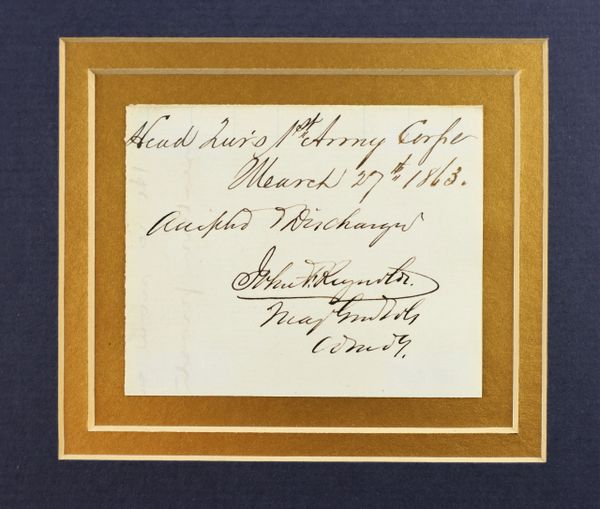 Head Qur's 1st Army Corps
March 27th 1863.
Accepted & Discharged
John F. Reynolds.
Maj Genl Vols
Comdg.